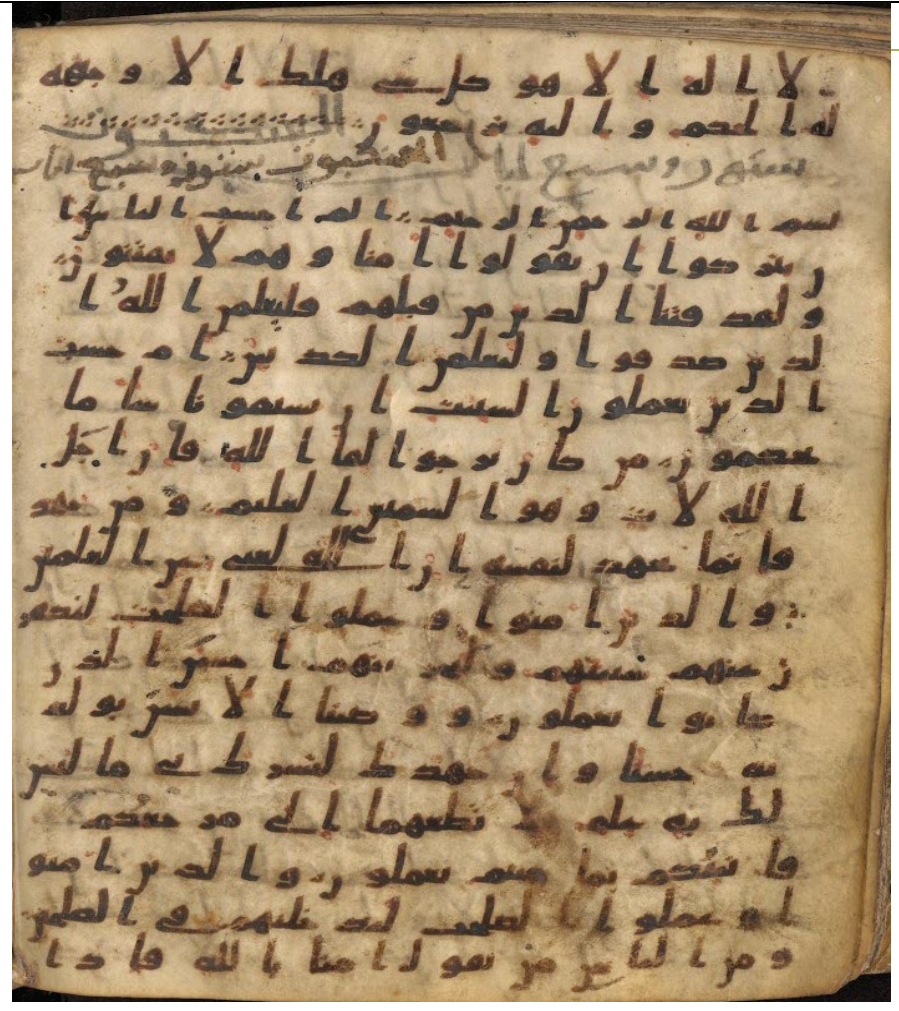 لا اله الا هو كل شى هلك الا وجهه
له الحكم واليه ترجعون
العنكبوت ستون وتسع ايات
بسم الله الرحمن الرحيم الم احسب الناس ا
ن يتركوا ان يقولوا امنا وهم لا يفتنون
ولقد فتنا الذين من قبلهم فليعلمن الله ا
لذين صدقوا وليعلمن الكذبين ام حسب
الذين يعملون السيت ان يسبقونا سا ما
يحكمون من كان يرجوا لقا الله فان اجل
الله لات وهو السميع العليم ومن جهد
فانما يجهد لنفسه ان الله لغنى عن العلمين
والذين امنوا وعملوا الصلحت لنكفر
ن عنهم سيتهم ولنجزينهم احسن الذى
كانوا يعملون ووصينا الانسن بولد
يه حسنا وان جهدك لتشرك بى ما ليس
لك به علم فلا تطعهما الى مرجعكم
فانبيكم بما كنتم تعملون والذين امنو
ا وعملوا الصلحت لندخلنهم فى الصلحين
ومن الناس من يقول امنا بالله فاذا